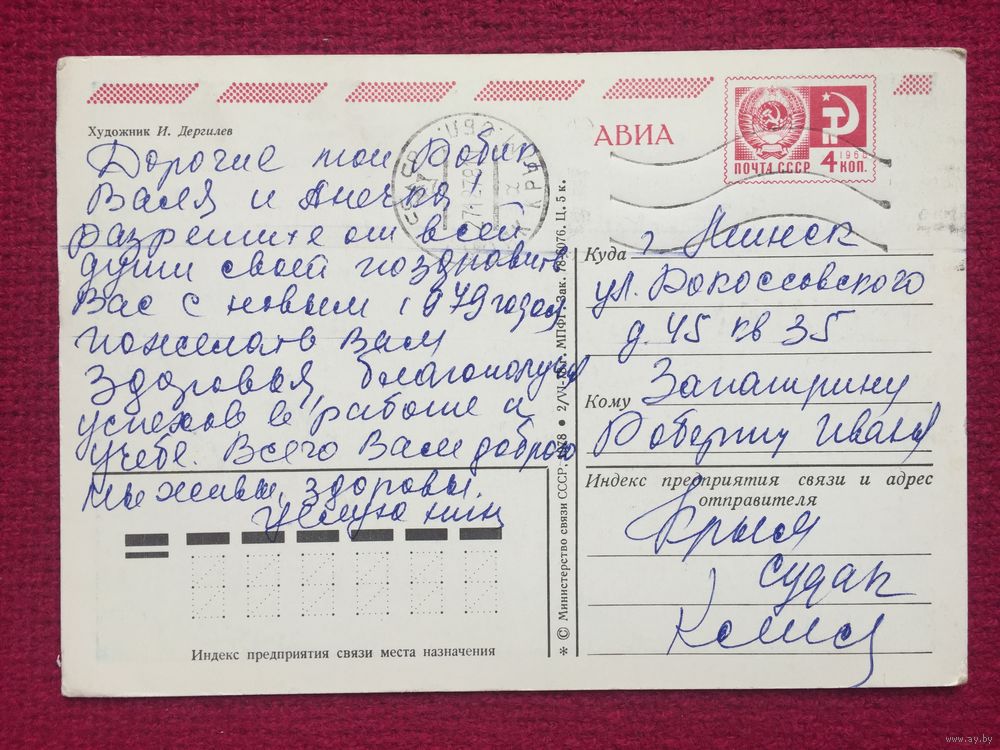 Художник И. Дергилев
АВИА
ПОЧТА СССР
1966
4 КОП.
Дорогие мои Робик
Валя и Анечка!
разрешите от всей
души своей поздравить
Вас с новым 1979 годом
пожелать Вам
здоровья, благополучия
успехов в работе и
учебе. Всего Вам доброго
Мы живы, здоровы.
Куда г. Минск
ул. Рокоссовского
д. 45 кв 35
Кому Запашрину
Роберту Иван
Индекс предприятия связи и адрес
отправителя
Крым
Судак
Индекс предприятия связи места назначения
* © Министерство связи СССР, 1978 • 2/VI-78 г. МПФГ. Зак. 78-6076. Ц. 5 к.
www.ay.by